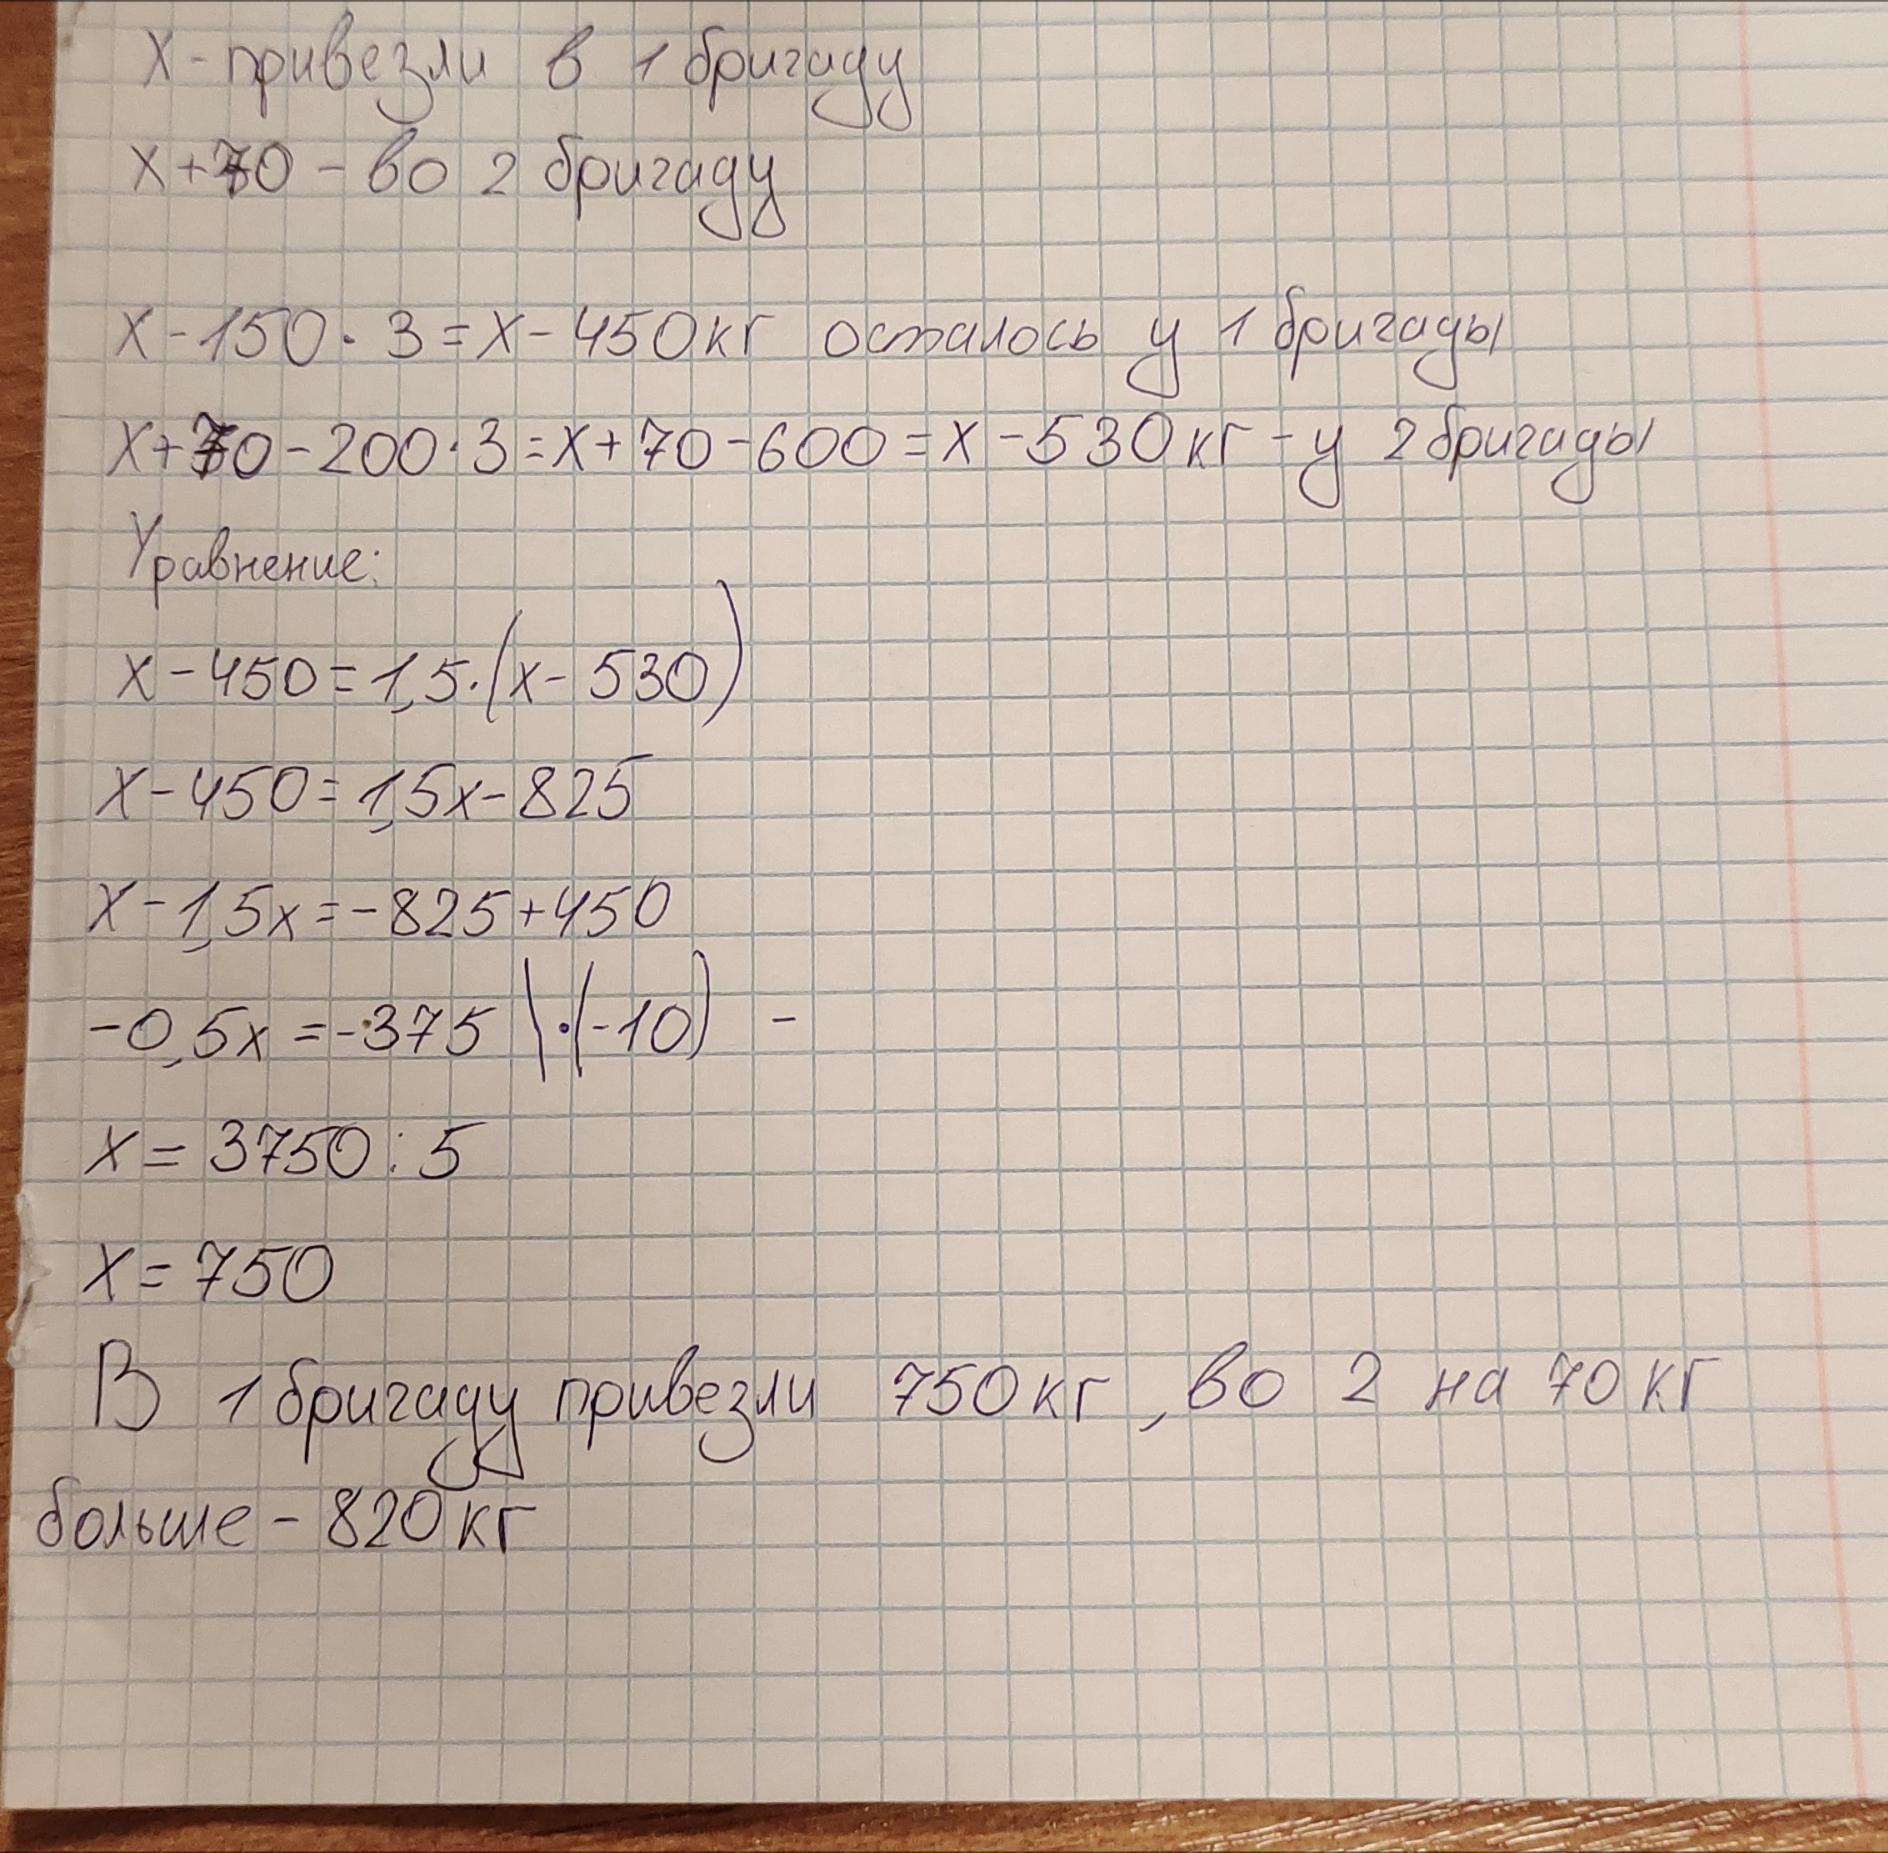 х - привезли в 1 бригаду
х + 70 - во 2 бригаду
х - 150 · 3 = х - 450 кг осталось у 1 бригады
х + 70 - 200 · 3 = х + 70 - 600 = х - 530 кг - у 2 бригады
Уравнение:
х - 450 = 1,5 · (х - 530)
х - 450 = 1,5х - 825
х - 1,5х = - 825 + 450
-0,5х = - 375 | · (-10) -
х = 3750 : 5
х = 750
В 1 бригаду привезли 750 кг, во 2 на 70 кг
больше - 820 кг